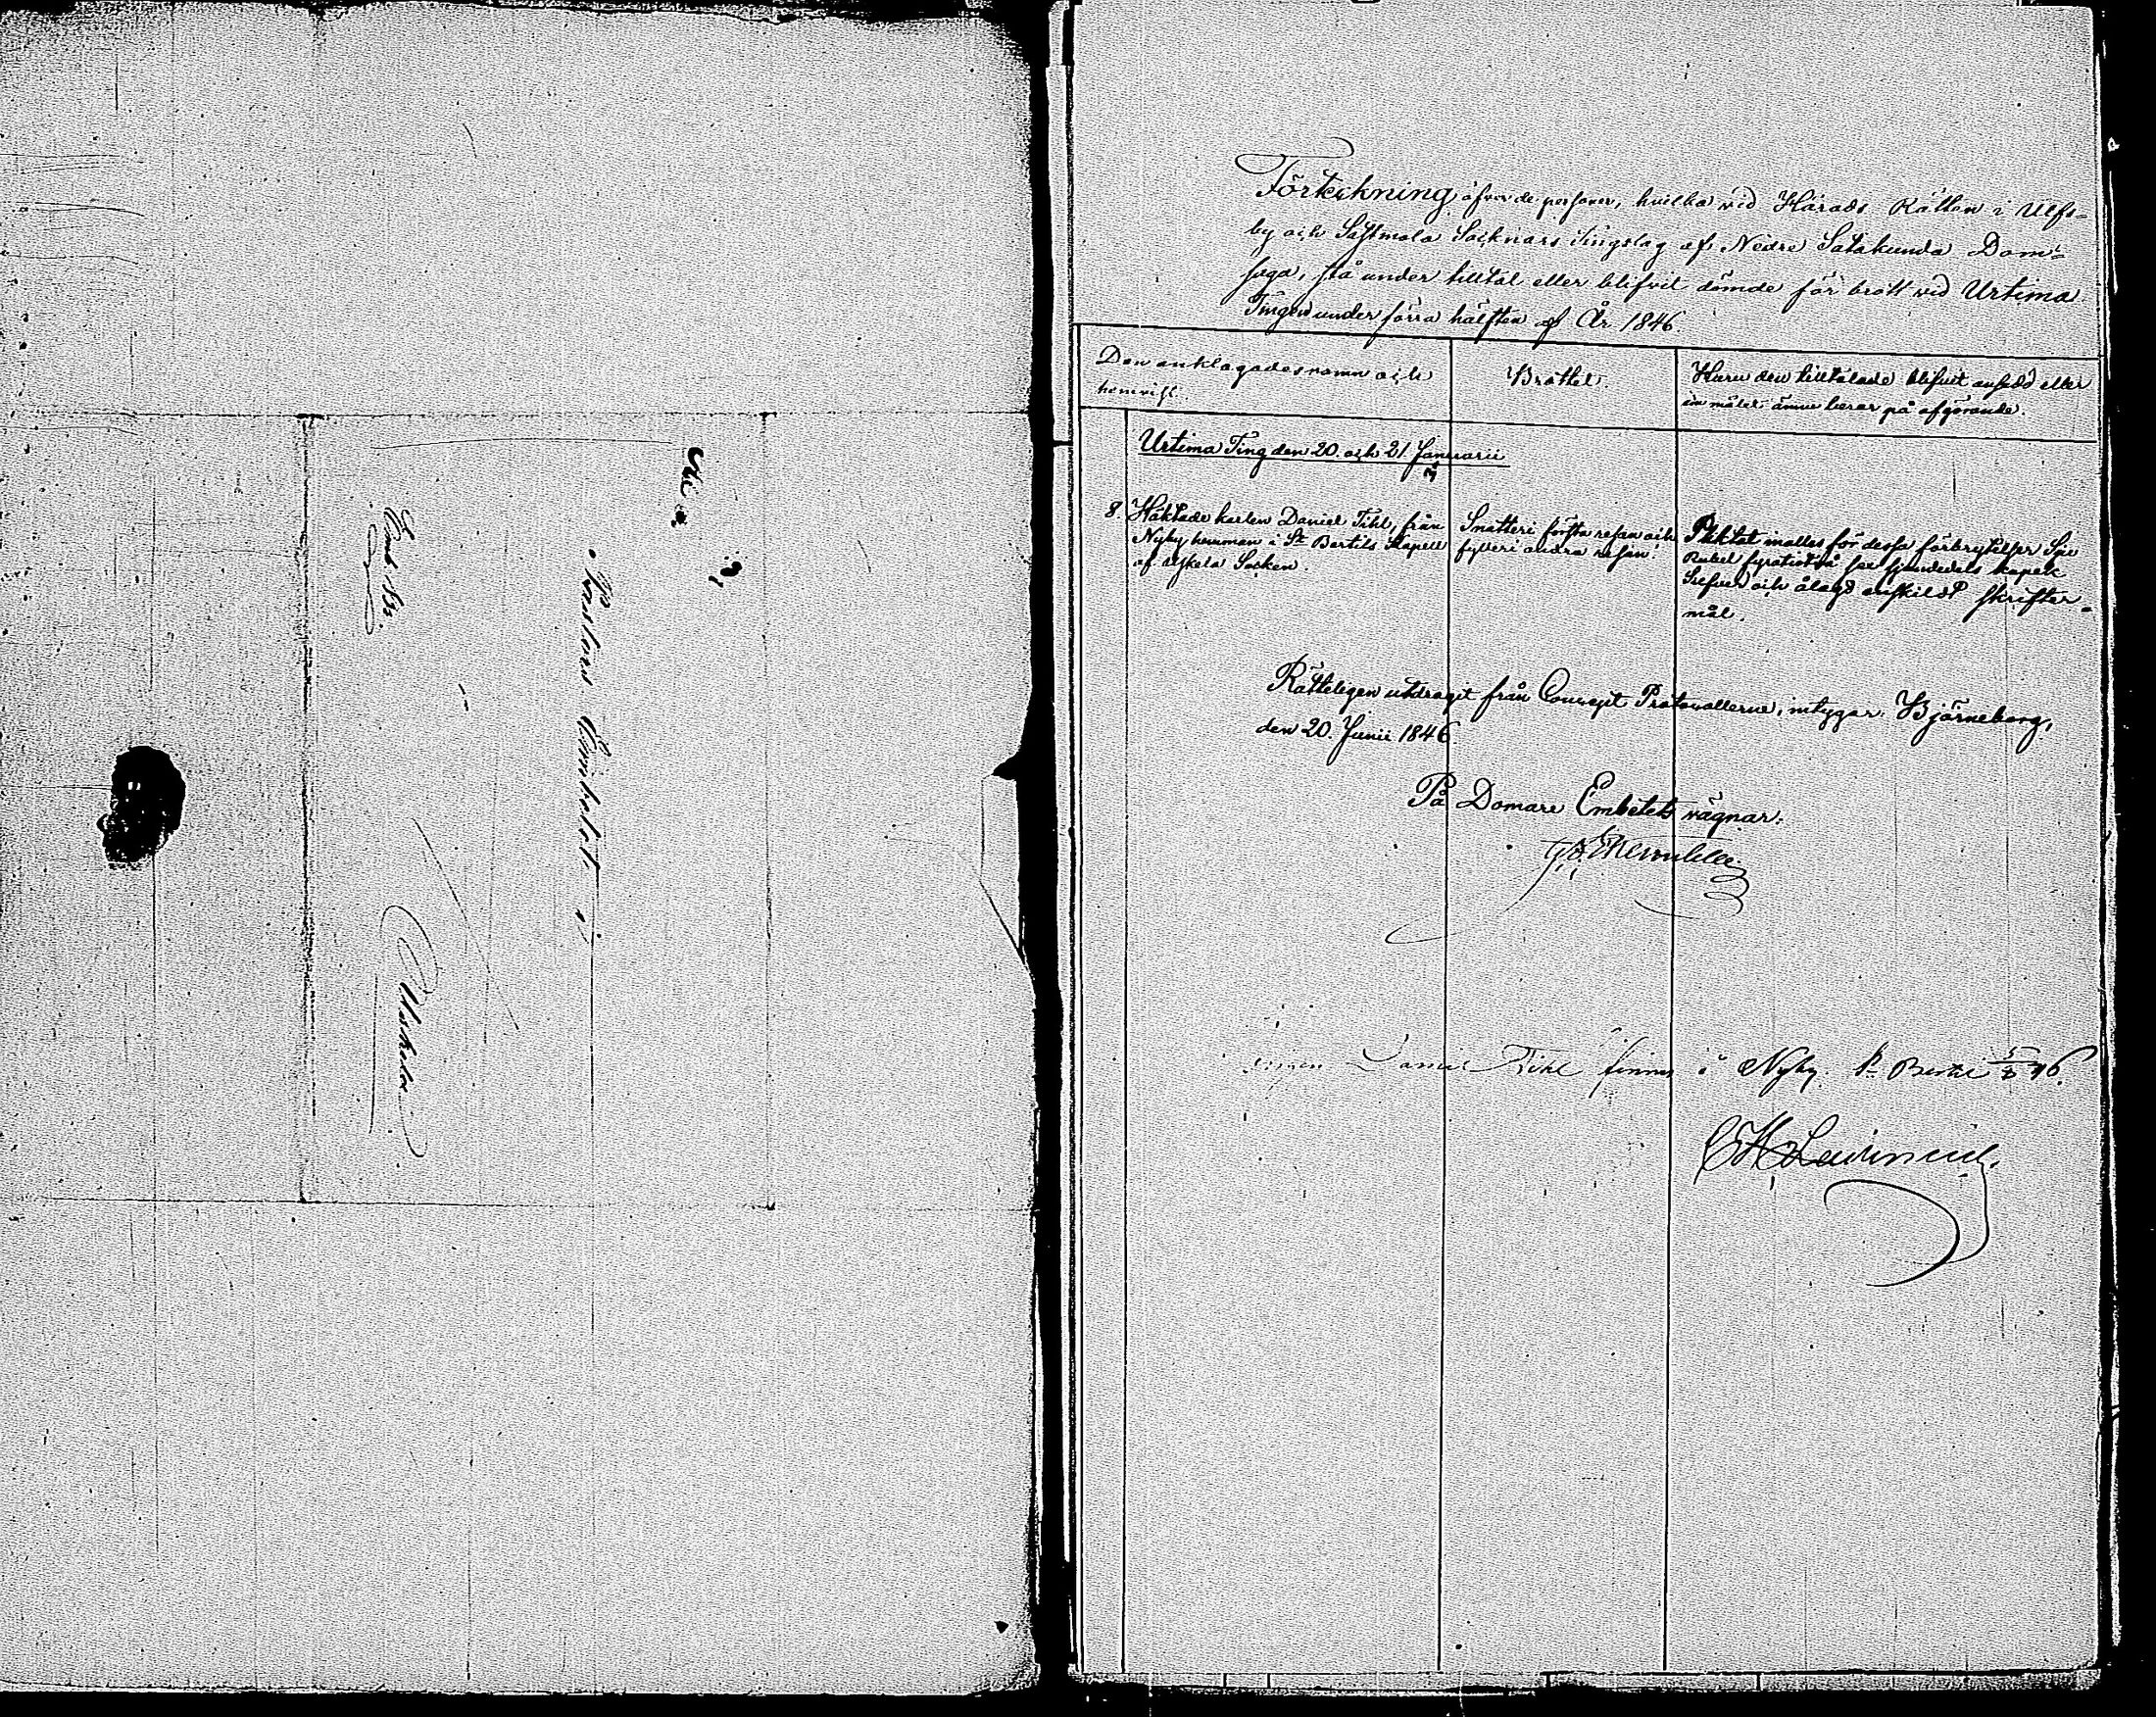 Pastors Embetet
Uskela
Förteckning öfver de personer, hvilka vid Härads Rätten i Ulfs-
by och Sastmola Socknars Tingslag af Nedre Satakunda Dom-
saga, stå under tilltal eller blifvit dömde för brott vid Urtima
Tingen under förra hälften af År 1846
Den anklagades namn och
hemvist.
Brottet.
Huru den tilltalade blifvit ansedd eller
om målet ännu beror på afgörande.
Urtima Ting den 20. och 21. Januarii
8. Häktade karlen Daniel Tihl, från
Nyby hemman i St Bertils Kapell
af Uskela Socken.
Snatteri första resan och
fylleri andra resan.
Pliktat malles för dessa förbrytelser Sju
Rubel fyratiotvå sex sjundedels kopek
Silfver och ålagd enskildt skrifter-
mål.
Rätteligen utdragit från Concept Protocollerne, intygar. Björneborg,
den 20. Junii 1846.
På Domare Embetets vägnar:
Daniel Tihl finnes i Nyby. St Bertil 46.